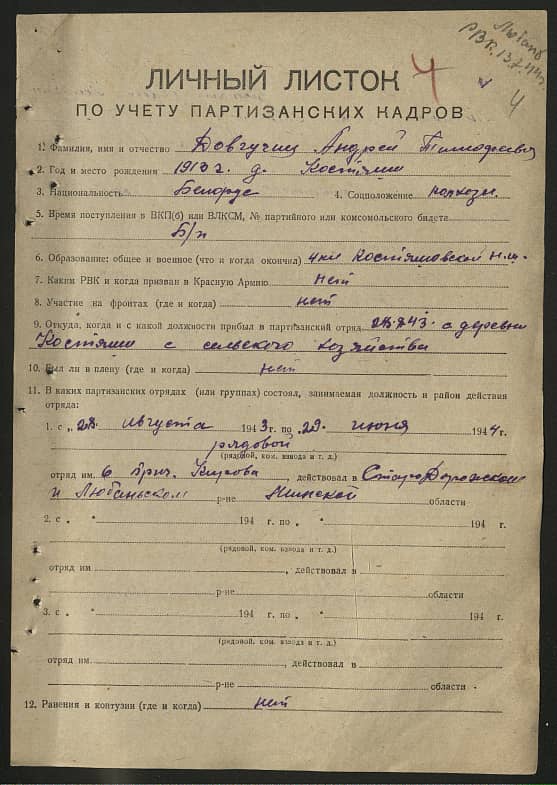 Любань
РВК. 13.7.44г.
4
4
ЛИЧНЫЙ ЛИСТОК
ПО УЧЕТУ ПАРТИЗАНСКИХ КАДРОВ
1. Фамилия, имя и отчество Довгучиц Андрей Тимофеевич
2. Год и место рождения 1913 г. д. Костяши
3. Национальность Белорус 4. Соцположение колхозн.
5. Время поступления в ВКП(б) или ВЛКСМ, № партийного или комсомольского билета
Б/п
6. Образование: общее и военное (что и когда окончил) 4 кл Костяшовской н.ш.
7. Каким РВК и когда призван в Красную Армию нет
8. Участие на фронтах (где и когда) нет
9. Откуда, когда и с какой должности прибыл в партизанский отряд 28.8.43. с деревни
Костяши с сельского хозяйства
10. Был ли в плену (где и когда) нет
11. В каких партизанских отрядах (или группах) состоял, занимаемая должность и район действия
отряда:
1. с „28" августа 1943 г. по „29" июня 1944 г.
рядовой
(рядовой, ком. взвода и т. д.)
отряд им. 6 бриг. Кирова, действовал в Стародорожском
и Любаньском р-не Минской области
2. с „ " 194 г. по „ " 194 г.
(рядовой, ком. взвода и т. д.)
отряд им , действовал в
р-не области
3. с „ " 194 г. по „ " 194 г.
(рядовой, ком. взвода и т. д.)
отряд им. , действовал в
р-не области
12. Ранения и контузии (где и когда) нет